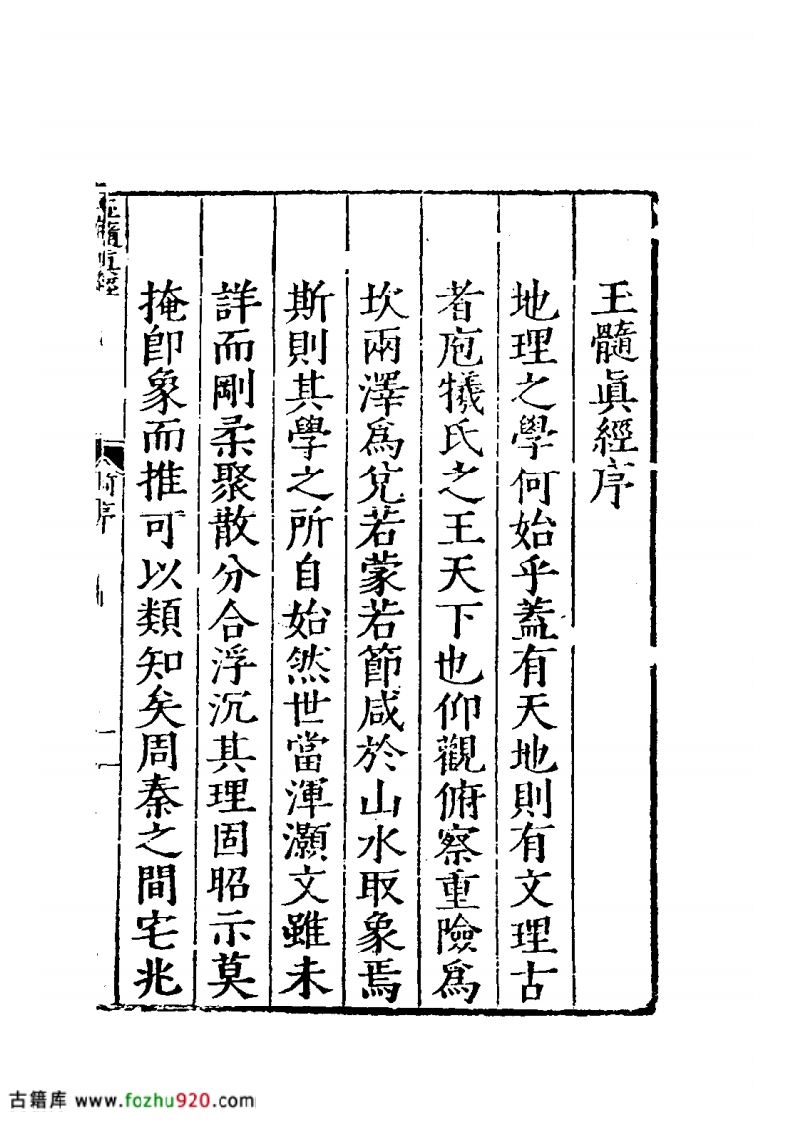 玉髓眞經序
地理之學何始乎蓋有天地則有文理古
者庖犧氏之王天下也仰觀俯察重險爲
坎兩澤爲兌若蒙若節咸於山水取象焉
斯則其學之所自始然世當渾灝文雖未
詳而剛柔聚散分合浮沉其理固昭示莫
掩卽象而推可以類知矣周秦之間宅兆
玉髓眞經
序
古籍库 www.fozhu920.com